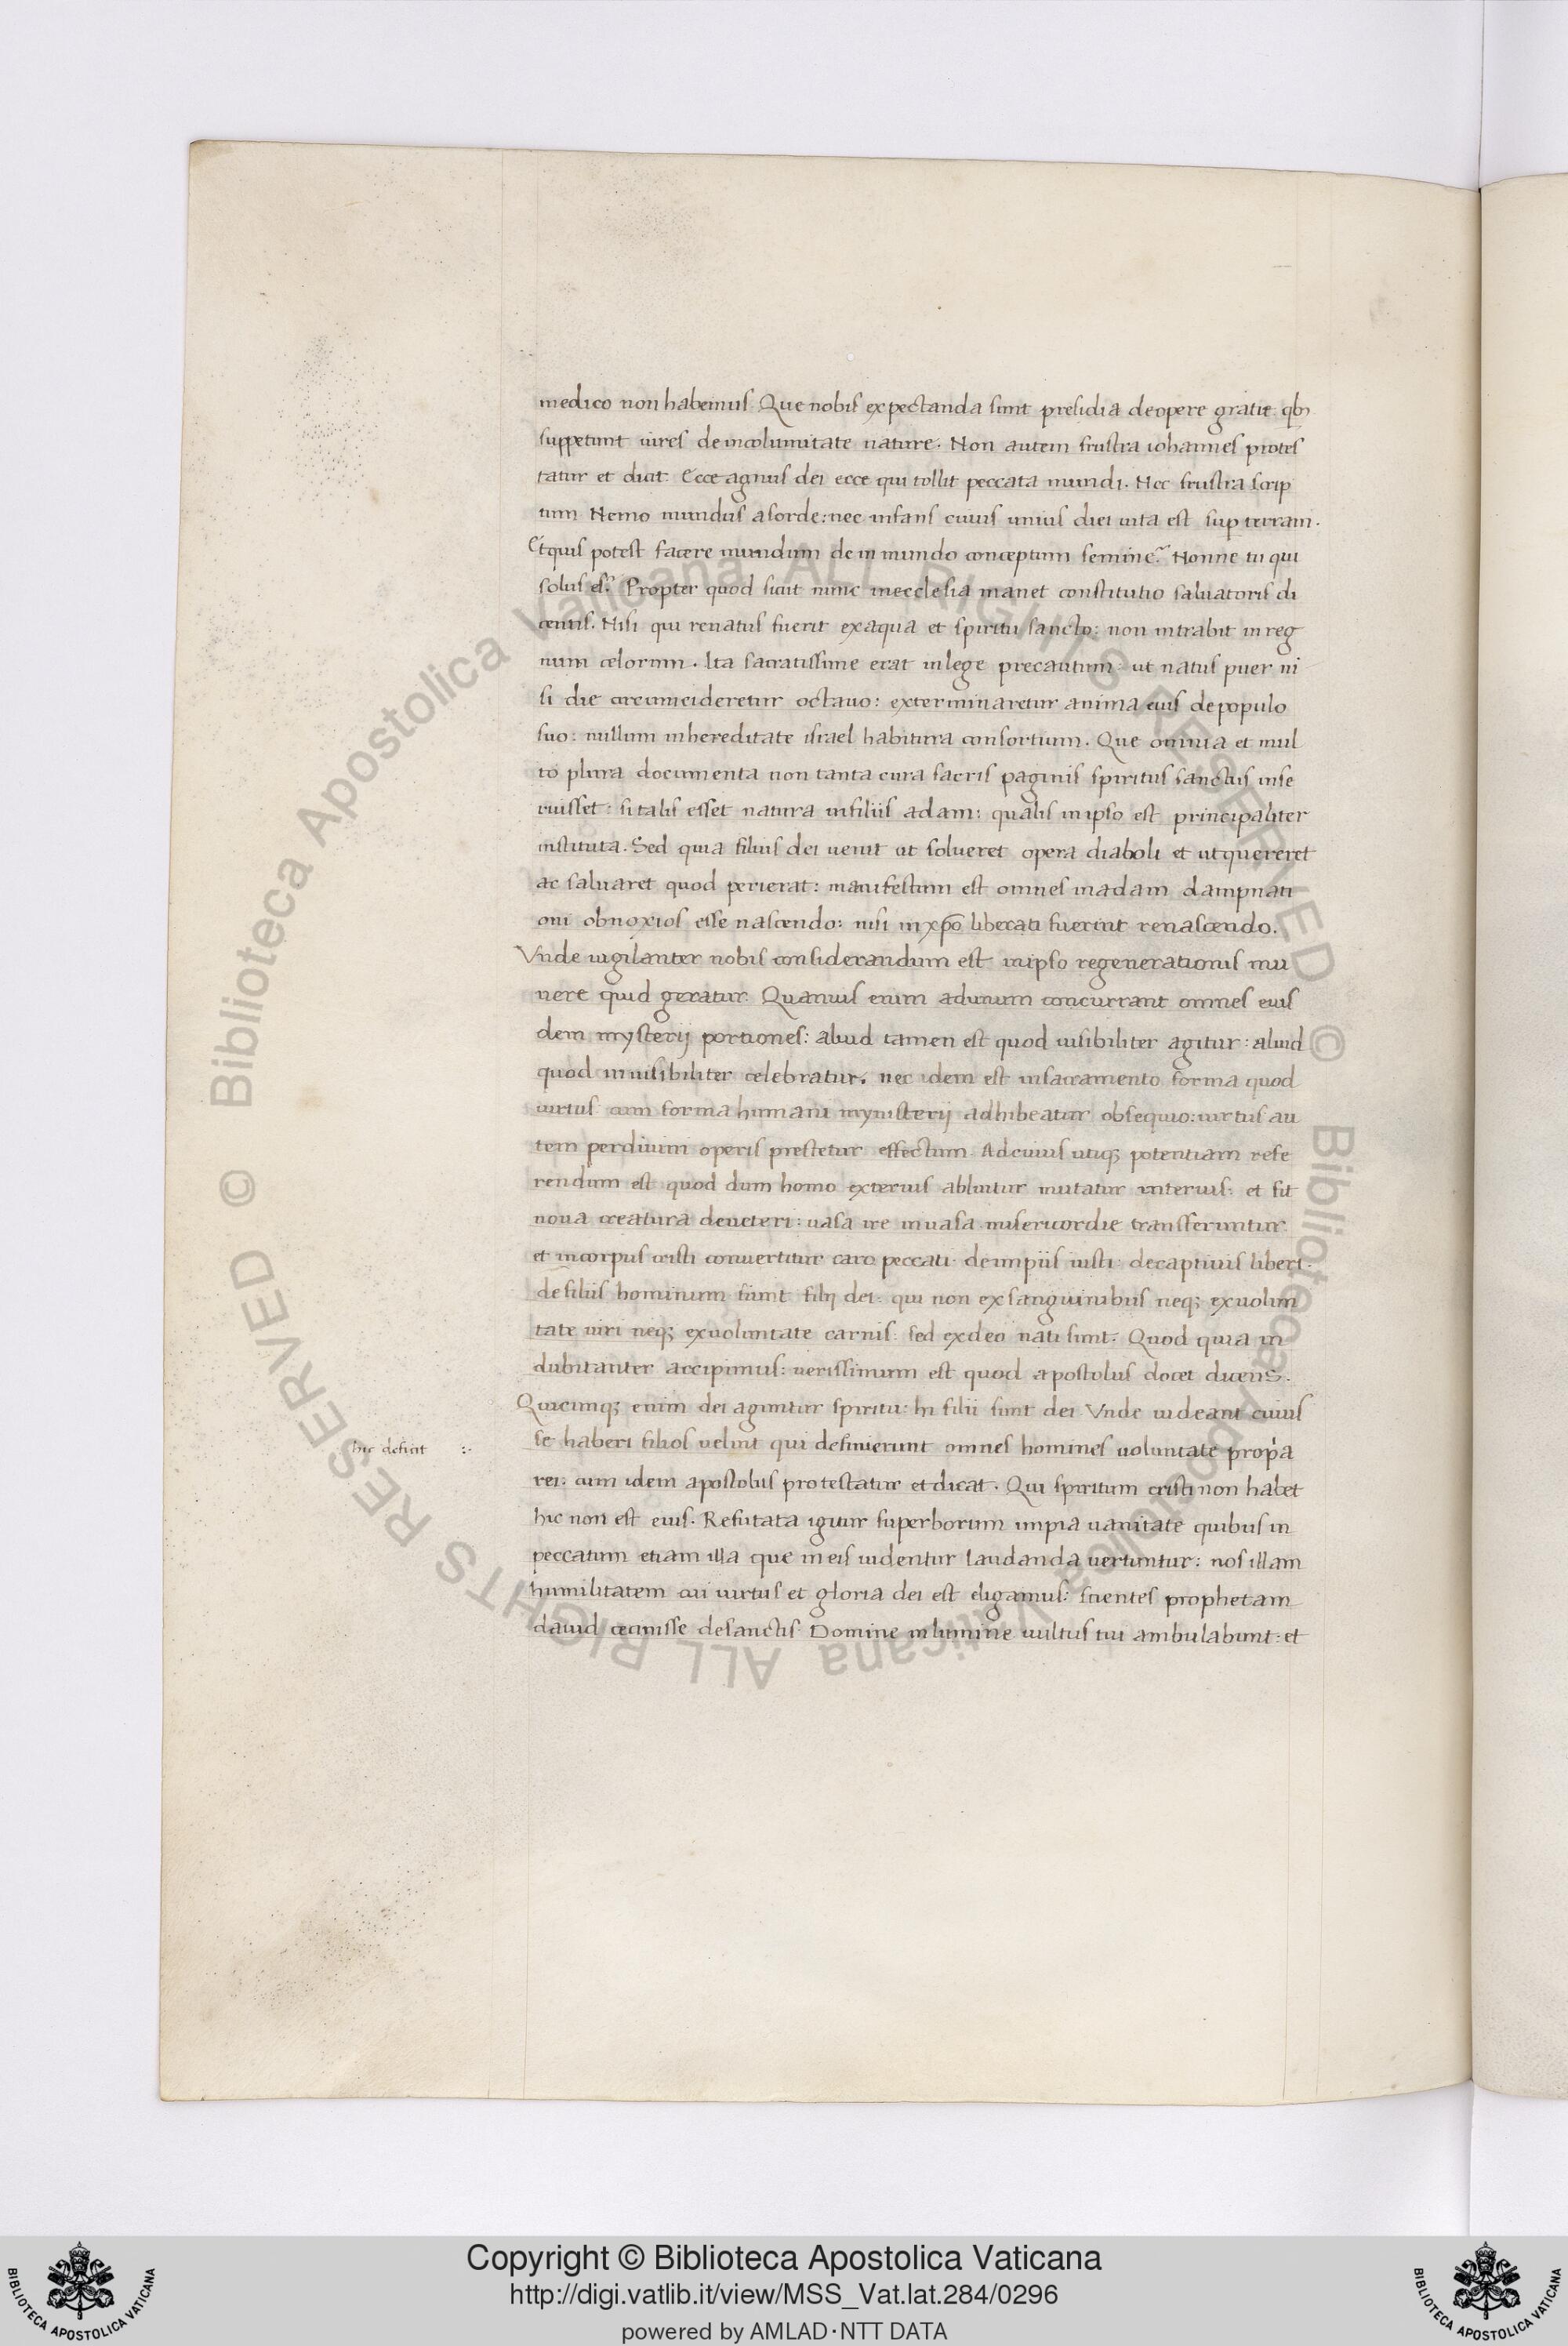 medico non habemus. Que nobis expectanda sunt presidia de opere gratie. qb3
suppetunt uires de incolumitate nature. Non autem frustra iohannes protes
tatur et dicit. Ecce agnus dei ecce qui tollit peccata mundi. Nec frustra scrip
tum Nemo mundus a sorde: nec infans cuius unius diei uita est sup terram.
Et quis potest facere mundum de inmundo conceptum semine? Nonne tu qui
solus es? Propter quod sicut nunc in ecclesia manet constitutio saluatoris di
centis. Nisi qui renatus fuerit ex aqua et spiritu sancto: non intrabit in reg
num celorum. Ita sacratissime erat in lege precautum: ut natus puer ni
si die circumcideretur octauo: exterminaretur anima eius de populo
suo: nullum in hereditate israel habitura consortium. Que omnia et mul
to plura documenta non tanta cura sacris paginis spiritus sanctus inse
ruisset: si talis esset natura in filiis adam: qualis in ipso est principaliter
instituta. Sed quia filius dei uenit ut solueret opera diaboli et ut quereret
ac saluaret quod perierat: manifestum est omnes in adam dampnati
oni obnoxios esse nascendo: nisi in xpo liberati fuerint renascendo.
Vnde uigilanter nobis considerandum est in ipso regenerationis mu
nere quid geratur. Quamuis enim ad unum concurrant omnes eius
dem mysterij portiones: aliud tamen est quod uisibiliter agitur: aliud
quod inuisibiliter celebratur. nec idem est in sacramento forma quod
uirtus cum forma humani mynisterij adhibeatur obsequio: uirtus au
tem per diuini operis prestetur effectum. Ad cuius utiq; potentiam refe
rendum est quod dum homo exterius abluitur mutatur interius: et fit
noua creatura de ueteri: uasa ire in uasa misericordie transferuntur
et in corpus cristi conuertitur caro peccati. de impiis iusti. de captiuis liberi.
de filiis hominum fiunt filij dei. qui non ex sanguinibus neq; ex uolun
tate uiri neq; ex uoluntate carnis: sed ex deo nati sunt. Quod quia in
dubitanter accipimus: uerissimum est quod apostolus docet dicens.
Quicunq; enim dei aguntur spiritu: hi filii sunt dei. Vnde uideant cuius
hic deficit :·
se haberi filios uelint qui definierunt omnes homines uoluntate propa
rei: cum idem apostolus protestatur et dicat. Qui spiritum cristi non habet
hic non est eius. Refutata igitur superborum impia uanitate quibus in
peccatum etiam illa que in eis uidentur laudanda uertuntur: nos illam
humilitatem cui uirtus et gloria dei est eligamus: scientes prophetam
dauid cecinisse de sanctis. Domine in lumine uultus tui ambulabunt: et
© Biblioteca Apostolica Vaticana ALL RIGHTS RESERVED © Biblioteca Apostolica Vaticana ALL RIGHTS RESERVED
Copyright © Biblioteca Apostolica Vaticana
http://digi.vatlib.it/view/MSS_Vat.lat.284/0296
powered by AMLAD·NTT DATA
BIBLIOTECA APOSTOLICA VATICANA
BIBLIOTECA APOSTOLICA VATICANA